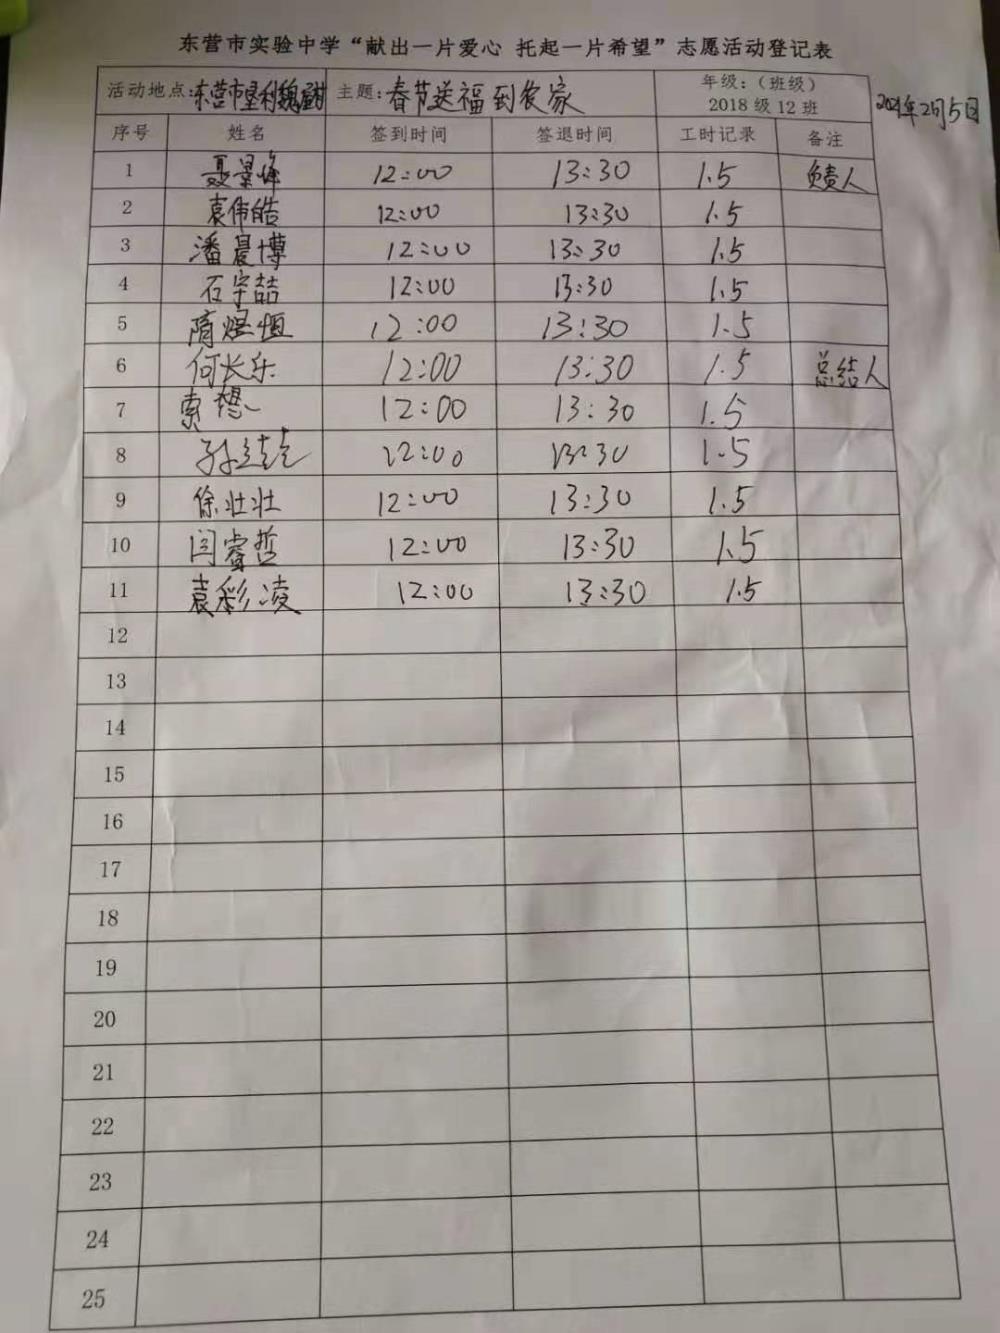 东营市实验中学“献出一片爱心 托起一片希望”志愿活动登记表
活动地点:东营市垦利 主题:春节送福到农家 年级:(班级) 2018 级 12 班 2021年2月5日
序号 姓名 签到时间 签退时间 工时记录 备注
1 聂景峰 12:00 13:30 1.5 负责人
2 袁伟皓 12:00 13:30 1.5
3 潘晨博 12:00 13:30 1.5
4 石宇喆 12:00 13:30 1.5
5 隋煜恒 12:00 13:30 1.5
6 何长乐 12:00 13:30 1.5 总结人
7 索想 12:00 13:30 1.5
8 12:00 13:30 1.5
9 徐壮壮 12:00 13:30 1.5
10 闫睿哲 12:00 13:30 1.5
11 袁彩凌 12:00 13:30 1.5
12
13
14
15
16
17
18
19
20
21
22
23
24
25